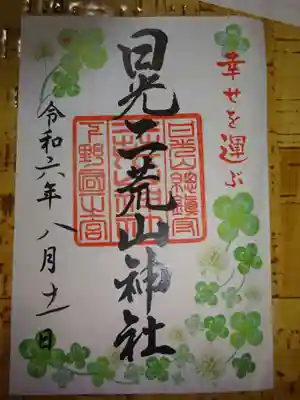 幸せを運ぶ
日光二荒山神社
日光山總鎮守
下野國一宮
令和六年八月十一日